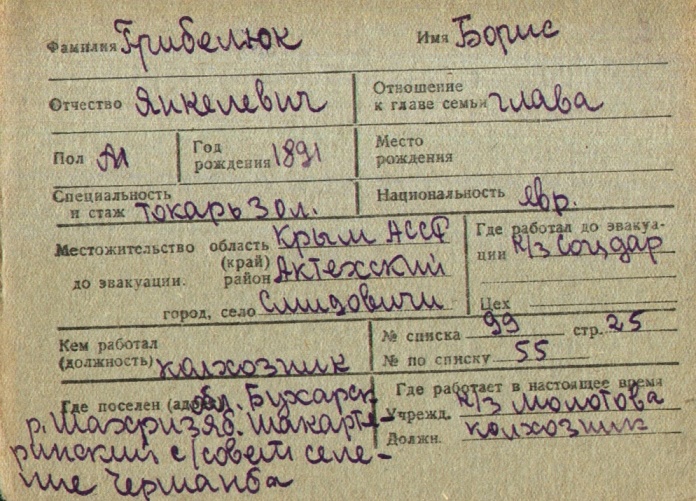 Фамилия Грибелюк Имя Борис
Отчество Янкелевич Отношение к главе семьи глава
Пол М Год рождения 1891 Место рождения
Специальность и стаж токарь 3 ол. Национальность явр.
Местожительство область Крым АССР Где работал до эвакуа-
(край) ции к/з Соцдар
до эвакуации. район Актехский
город, село Смидовичи Цех
Кем работал № списка 99 стр. 25
(должность) колхозник № по списку 55
Где поселен (адрес) обл. Бухарск Где работает в настоящее время
р. Шахризяб. Шакарте- Учрежд. к/з Молотова
ринский с/совет селе- Должн. колхозник
ние Чершанба